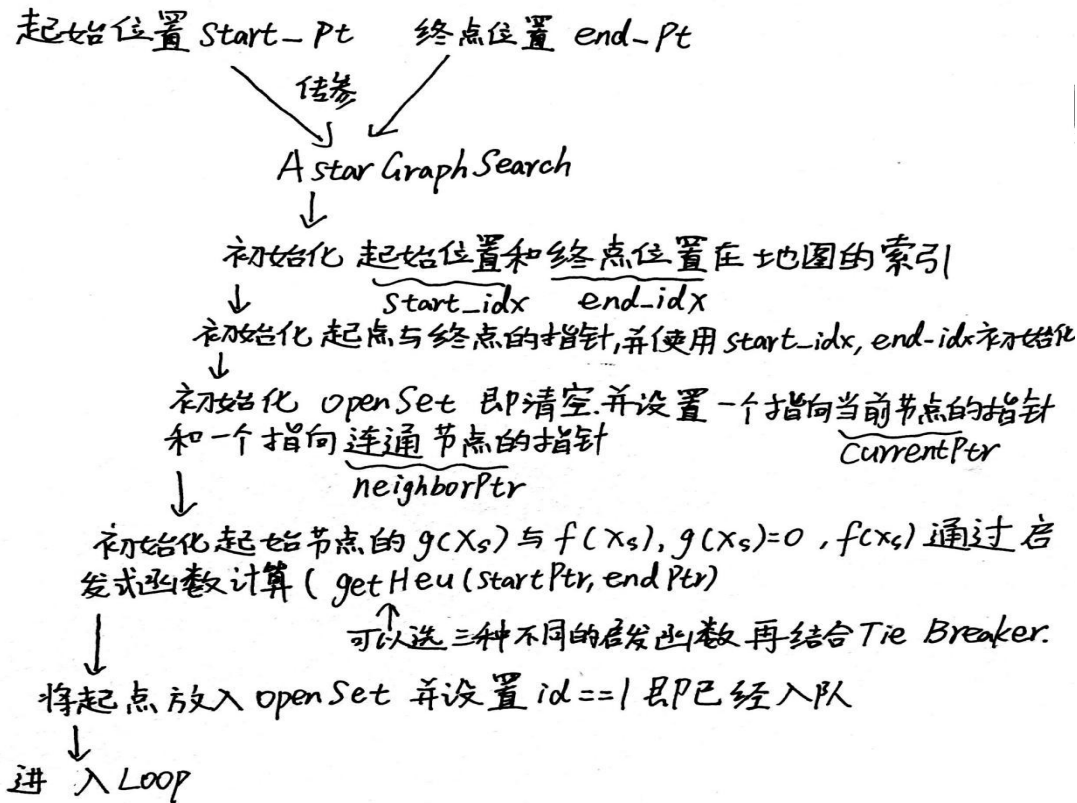 起始位置 Start_Pt 终点位置 end_Pt
传参
AstarGraphSearch
初始化 起始位置和终点位置在地图的索引
start_idx end_idx
初始化起点与终点的指针,并使用start_idx, end_idx初始化
初始化 openSet 即清空.并设置一个指向当前节点的指针
和一个指向连通节点的指针
currentPtr
neighborPtr
初始化起始节点的g(Xs)与f(Xs), g(Xs)=0 , f(Xs)通过启
发式函数计算( getHeu(startPtr, endPtr)
可以选三种不同的启发函数再结合Tie Breaker.
将起点放入openSet 并设置id==1 即已经入队
进入Loop